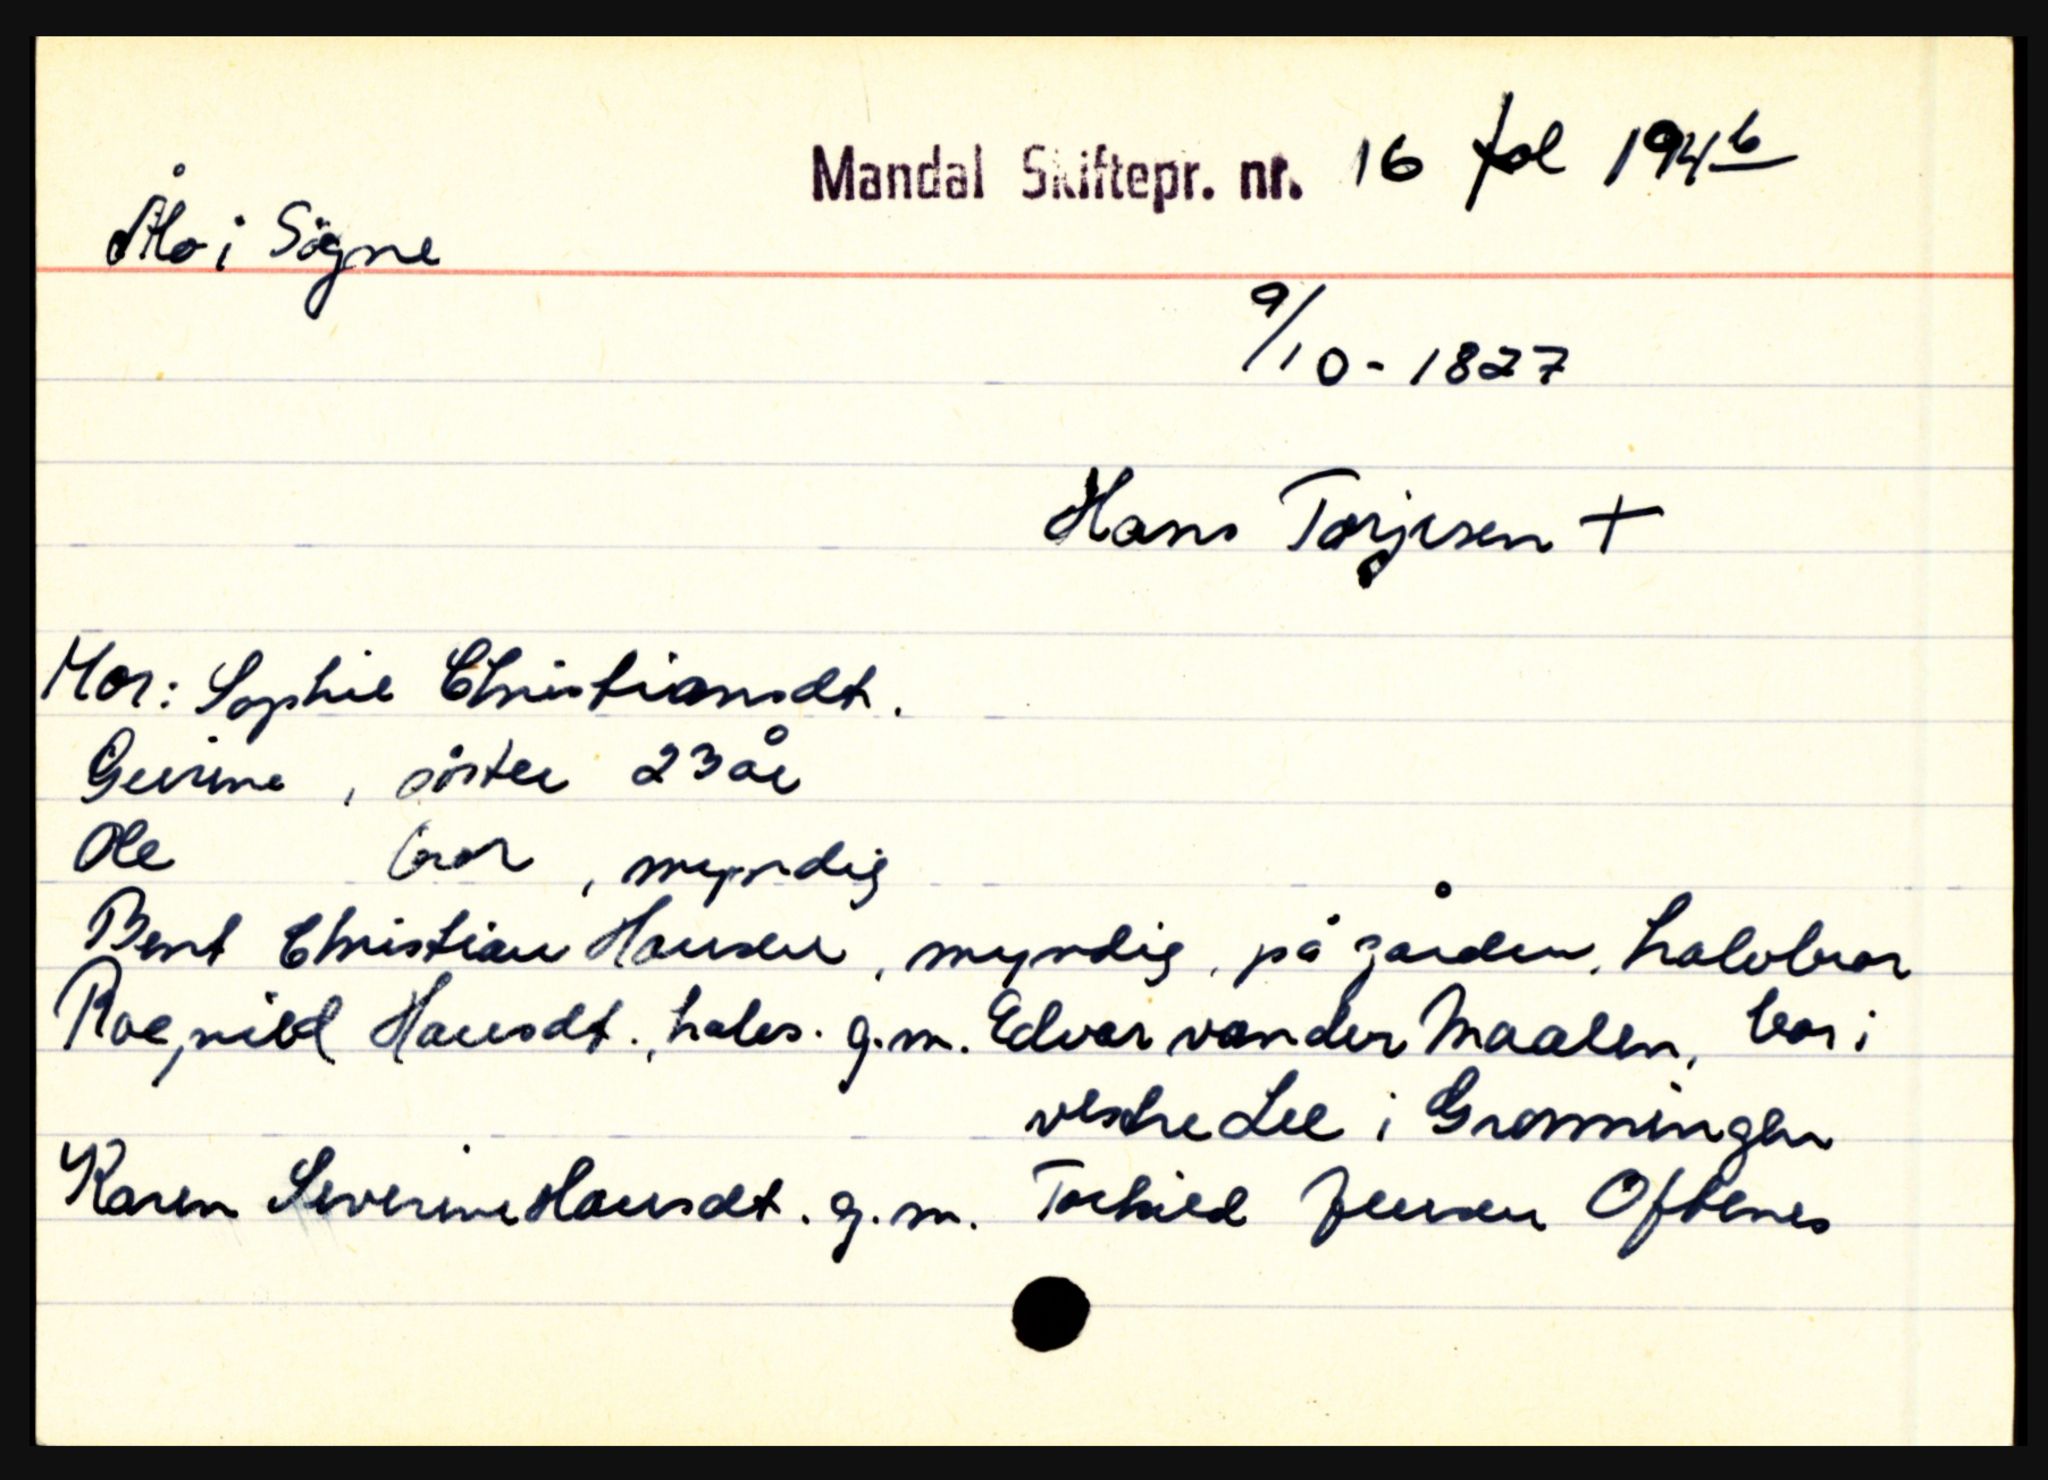 Mandal Skiftepr. nr. 16 fol 194b
Ålo i Sögne
9/10-1827
Hans Torjesen +
Mor: Sophie Christiansdt.
Gurine, söster 23 år
Ole bror, myndig
Bent Christian Hansen, myndig, på gården, halvbror
Ragnild Hansdt., halvs. g.m. Edvar vander Maalen, bor i
vestre Lee i Gronningen
Karen Severine Hansdt. g.m. Torkild Jensen Oftenes